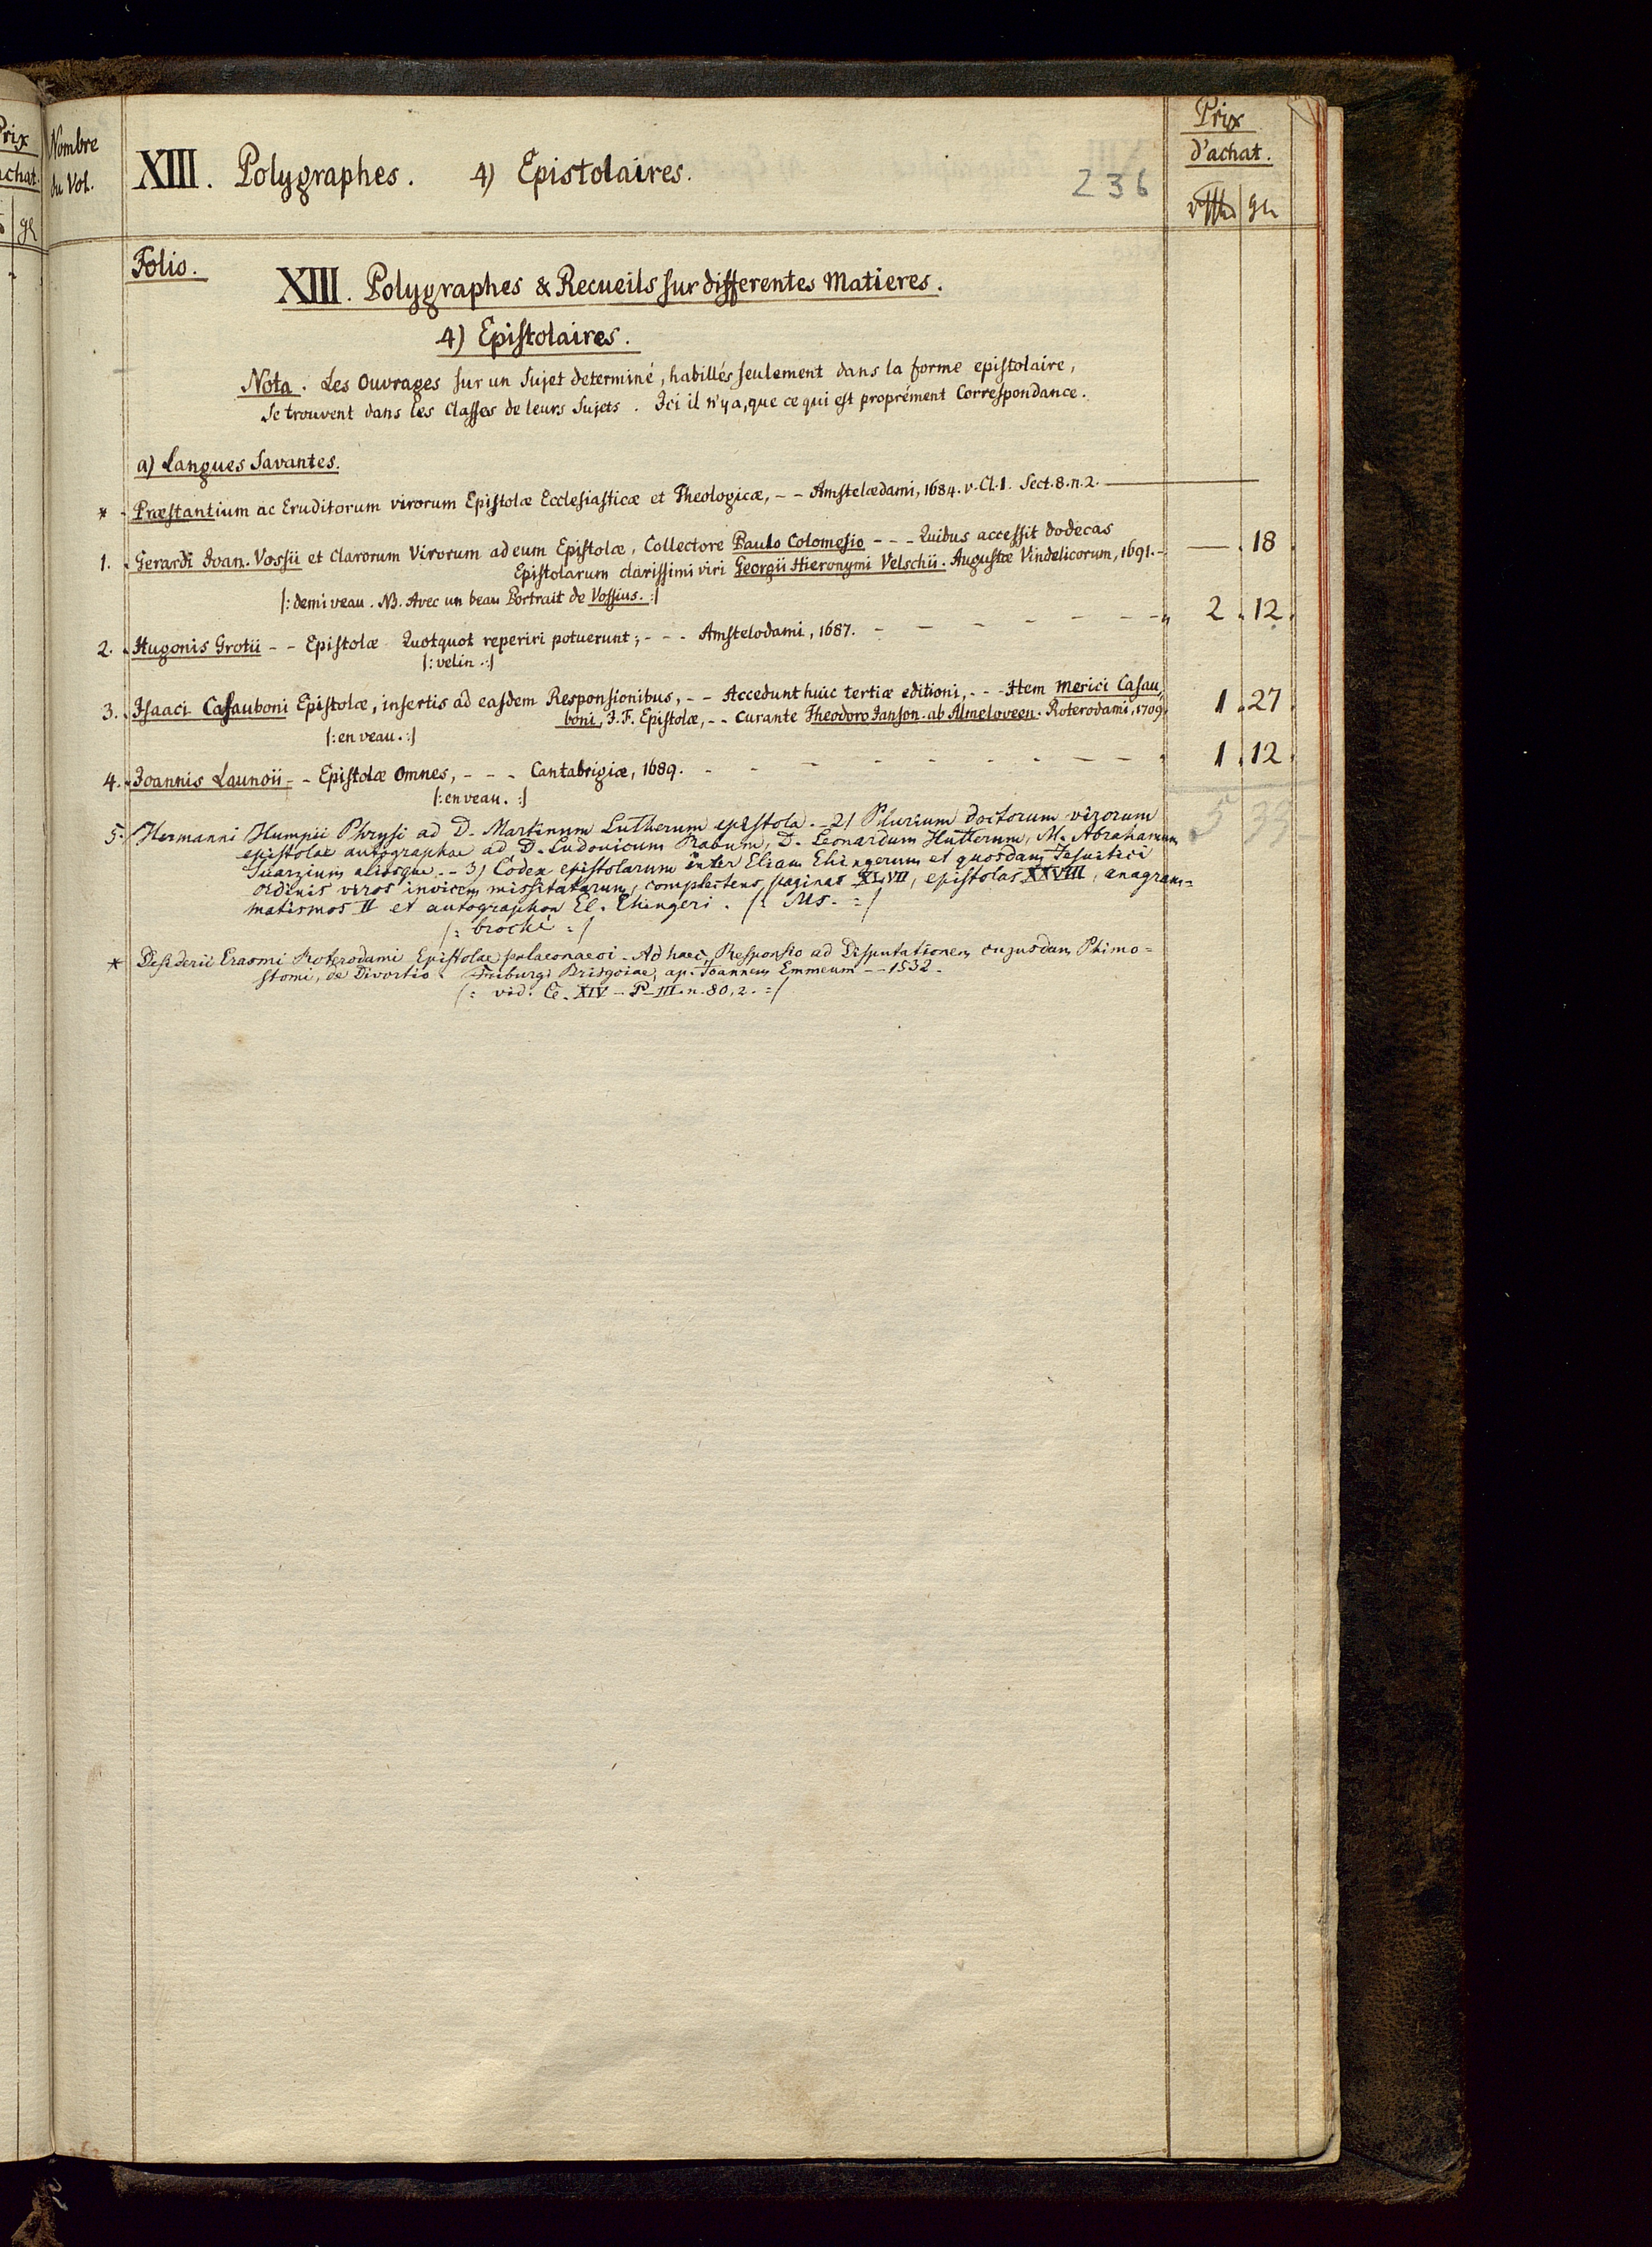 Prix
achat.
gl
Nombre
du Vol.
XIII. Polygraphes. 4) Epistolaires.
236
Prix
d'achat.
rthl gl
Folio.
XIII. Polygraphes & Recueils sur differentes Matieres.
4) Epistolaires.
Nota. Les Ouvrages sur un Sujet determiné, habillés seulement dans la forme epistolaire,
Se trouvent dans les Classes de leurs Sujets. Ici il n'y a, que ce qui est proprément Correspondance.
a) Langues Savantes.
* Præstantium ac Eruditorum virorum Epistolæ Ecclesiasticæ et Theologicæ, - - Amstelædami, 1684. v. Cl. 1. Sect. 8. n. 2. —
1. Gerardi Ioan. Vossii et Clarorum Virorum ad eum Epistolæ, Collectore Paulo Colomesio - - - Quibus accessit dodecas
Epistolarum clarissimi viri Georgii Hieronymi Velschii. Augustæ Vindelicorum, 1691. - — . 18
|: demi veau. NB. Avec un beau Portrait de Vossius. :|
2. Hugonis Grotii - - Epistolæ Quotquot reperiri potuerunt; - - - Amstelodami, 1687. - - - - - - - 2 . 12.
|: velin. :|
3. Isaaci Casauboni Epistolæ, insertis ad easdem Responsionibus, - - Accedunt huic tertiæ editioni, - - - Item Merici Casau,
boni, I. F. Epistolæ, - - Curante Theodoro Janson. ab Almeloveen. Roterodami, 1709. 1 . 27
|: en veau. :|
4. Joannis Launoii - - Epistolæ Omnes, - - - Cantabrigiæ, 1689. - - - - - - - - - 1 . 12.
|: en veau. :|
5 39
5. Hermanni Humpii Phrysi ad D. Martinum Lutherum epistola. - 2) Plurium doctorum virorum
epistolae autographae ad D. Ludovicum Rabum, D. Leonardum Hutterum, M. Abrahamum
Suarzium aliosque. - 3) Codex epistolarum inter Eliam Ehingerum et quosdam Jesuitici
ordinis viros invicem missitatarum, complectens paginas XLVII, epistolas XXVIII, anagram=
matismos II et autographon El. Ehingeri. |: Ms. :|
|: broché :|
* Desiderii Erasmi Roterodami Epistolae palaeonaeoi. Ad haec, Responsio ad Disputationem cujusdam Phimo=
stomi, de Divortio. Friburgi Brisgoiae, ap. Joannem Emmeum - - 1532.
|: vid. Cl. XIV - P. III. n. 80, 2. :|